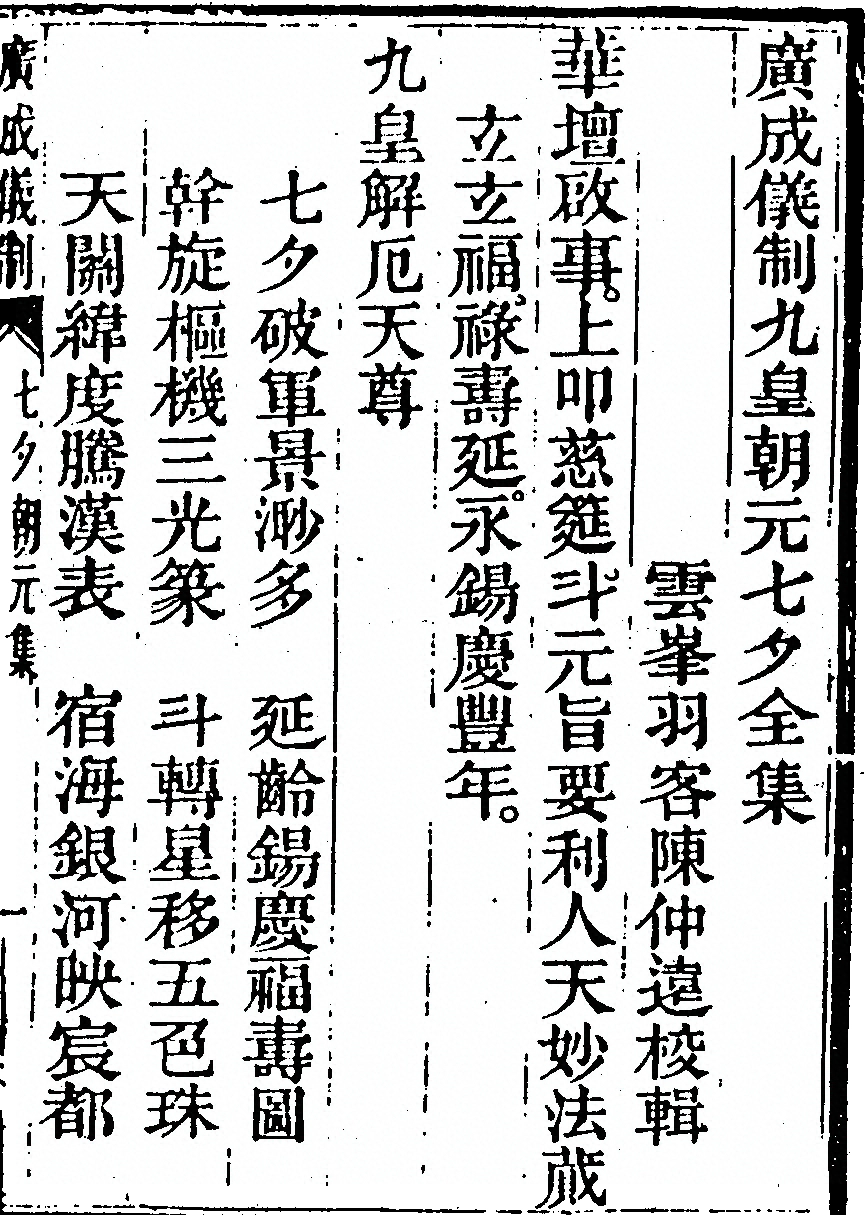 廣成儀制九皇朝元七夕全集
雲峯羽客陳仲遠校輯
華壇啟事。上叩慈筵。斗元旨要利人天妙法蔵
玄玄福祿壽延。永錫慶豐年。
九皇解厄天尊
七夕破軍景渺多　延齡錫慶福壽圖
幹旋樞機三光篆　斗轉星移五色珠
天關緯度騰漢表　宿海銀河映宸都
廣成儀制　七夕朝元集　一